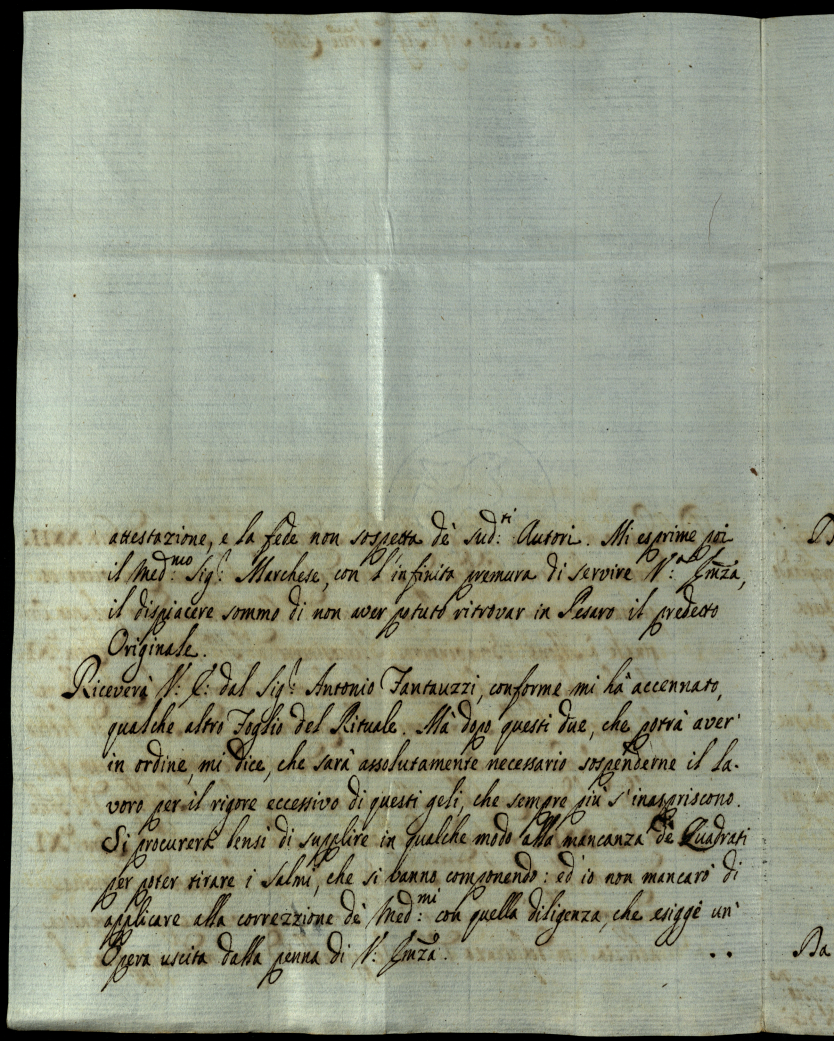 attestazione, e la fede non sospetta dè sud:ti Autori. Mi esprime poi
il Med:mo Sig:r Marchese, con l'infinita premura di servire V:a Emza,
il dispiacere sommo di non aver potuto ritrovar in Pesaro il predetto
Originale.
Riceverà V: E: dal Sig:r Antonio Fantauzzi, conforme mi hà accennato,
qualche altro Foglio del Rituale. Mà dopo questi due, che potrà aver'
in ordine, mi dice, che sarà assolutamente necessario sospenderne il la-
voro per il rigore eccessivo di questi geli, che sempre più s'inaspriscono.
Si procurerà bensì di supplire in qualche modo alla mancanza dè Quadrati
per poter tirare i Salmi, che si vanno componendo: ed io non mancarò di
applicare alla correzzione dè Med:mi con quella diligenza, che esigge un'
Opera uscita dalla penna di V: Emza.
Ba